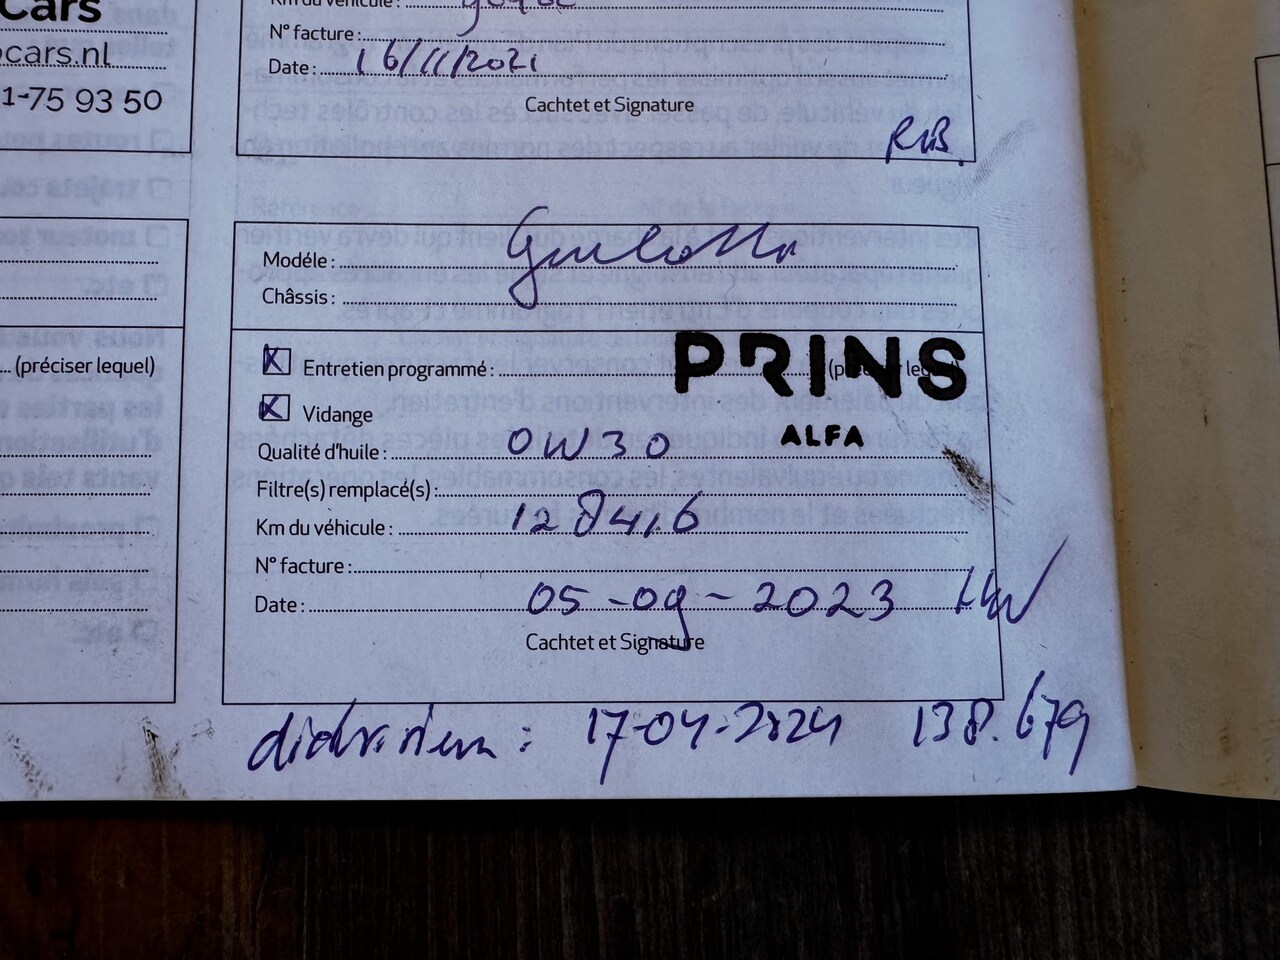 Cars
cars.nl
1-75 93 50
Km du véhicule :
N° facture :
Date : 16/11/2021
Cachtet et Signature
RUB.
Modèle : Giulietta
Châssis :
(préciser lequel)
Entretien programmé :
PRINS
ALFA
Vidange
Qualité d'huile : 0W30
Filtre(s) remplacé(s) :
Km du véhicule : 128416
N° facture :
Date : 05-09-2023
Cachtet et Signature
distr. riem : 17-04-2024 138.679